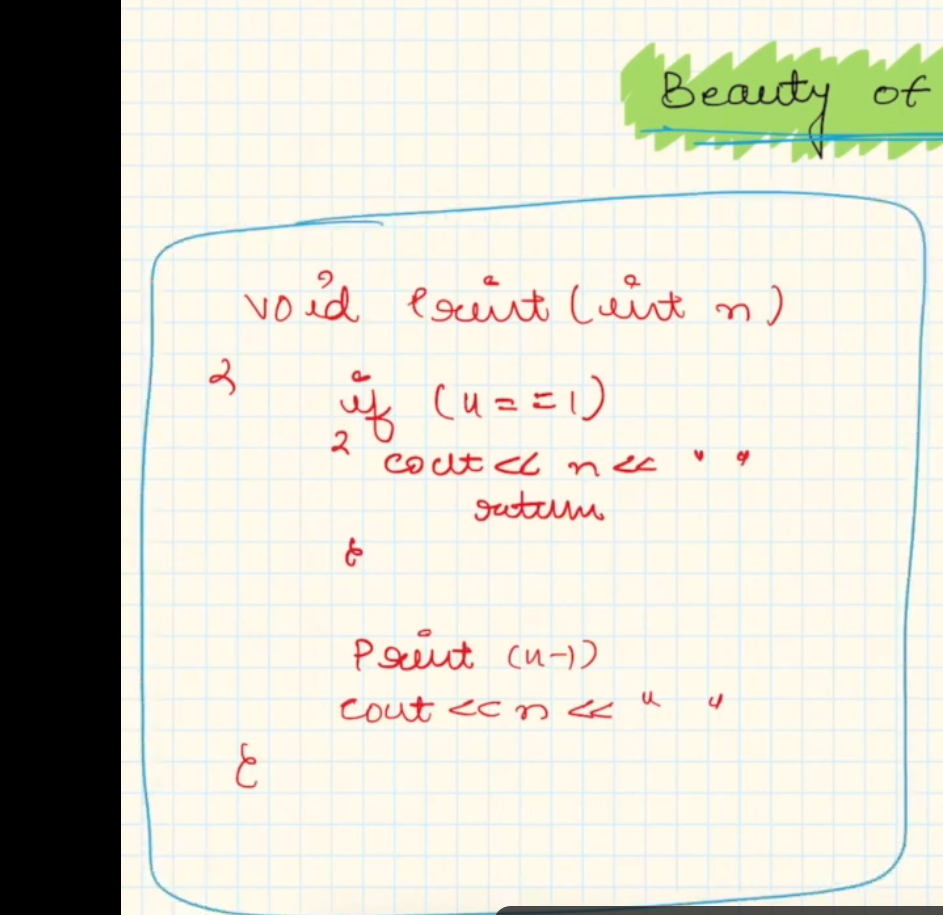 Beauty of
void Print (int n)
{
if (n==1)
{ cout << n << " "
return
}
Print (n-1)
cout << n << " "
}